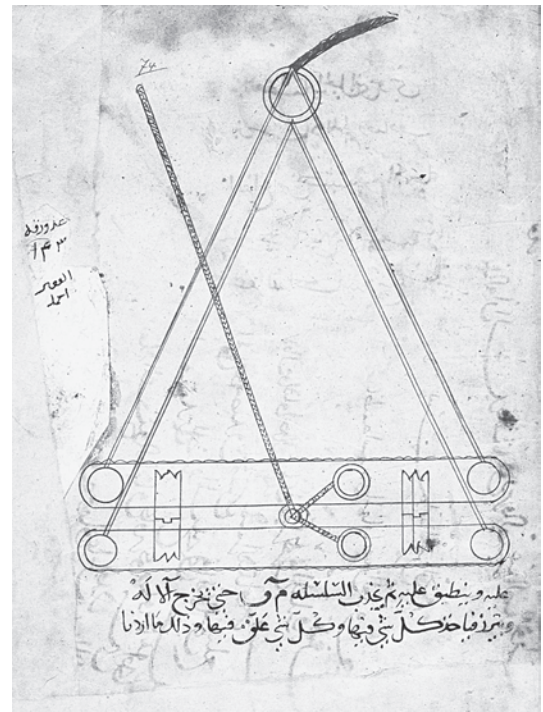 74
عدد ورقه
١٤٣
الفقير
احمد
عليه وينطبق عليه ثم يجذب السلسله م و حتى تخرج الاله
وتبرز فياخذ كل شي فيها وكل شي علق فيها وذلك ما اردنا